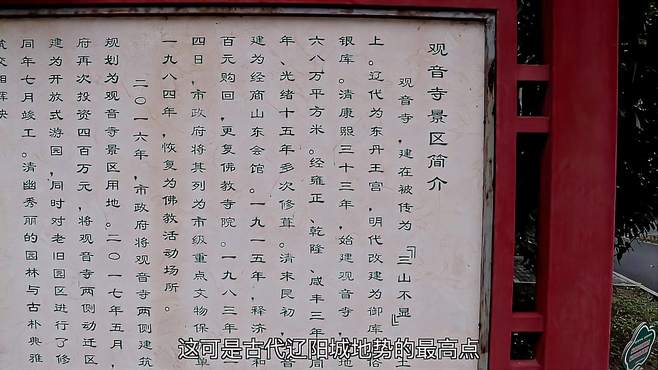 观音寺景区简介
观音寺，建在被传为『三山不显』土
上。辽代为东丹王宫，明代改建为御库俗
银库。清康熙三十三年，始建观音寺，地
六八万平方米。经雍正、乾隆、咸丰三年同
年、光绪十五年多次修葺。清末民初，晋
建为经商山东会馆。一九一五年，释济和
百元购回，更复佛教寺院。一九八三年一
四日，市政府将其列为市级重点文物保单
一九八四年，恢复为佛教活动场所。
二〇一六年，市政府将观音寺两侧建筑
规划为观音寺景区用地。二〇一七年五月，
府再次投资四百万元，将观音寺两侧动迁区
建为开放式游园，同时对老旧园区进行了修
同年七月竣工。清幽秀丽的园林与古朴典雅
筑交相辉映
这可是古代辽阳城地势的最高点